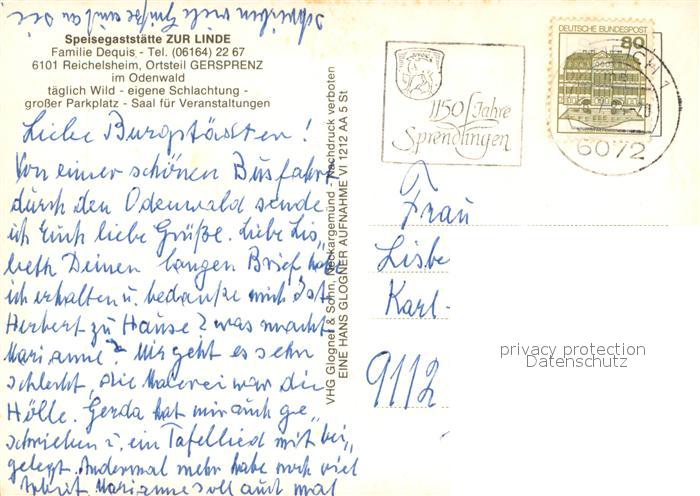 schreiben viele Grüße auch an sie
Speisegaststätte ZUR LINDE
Familie Dequis - Tel. (06164) 22 67
6101 Reichelsheim, Ortsteil GERSPRENZ
im Odenwald
täglich Wild - eigene Schlachtung -
großer Parkplatz - Saal für Veranstaltungen
Liebe
Von einer schönen Busfahrt
durch den Odenwald sende
ich Euch liebe Grüße. Liebe Lis„
beth Deinen langen Brief habe
ich erhalten u. bedanke mich Ist
Herbert zu Hause? was macht
Marianne? Mir geht es sehr
schlecht, die Malerei war die
Hölle. Gerda hat mir auch ge„
schrieben u. ein Tafellied mit bei„
gelegt. Andermal mehr habe noch viel
Arbeit Marianne soll auch mal
VHG Glogner & Sohn, Neckargemünd - Nachdruck verboten
EINE HANS GLOGNER AUFNAHME VI 1212 AA 5 St
1150 Jahre
Sprendlingen
DEUTSCHE BUNDESPOST
80
6072
Frau
Lisbe
Karl-
9112
privacy protection
Datenschutz